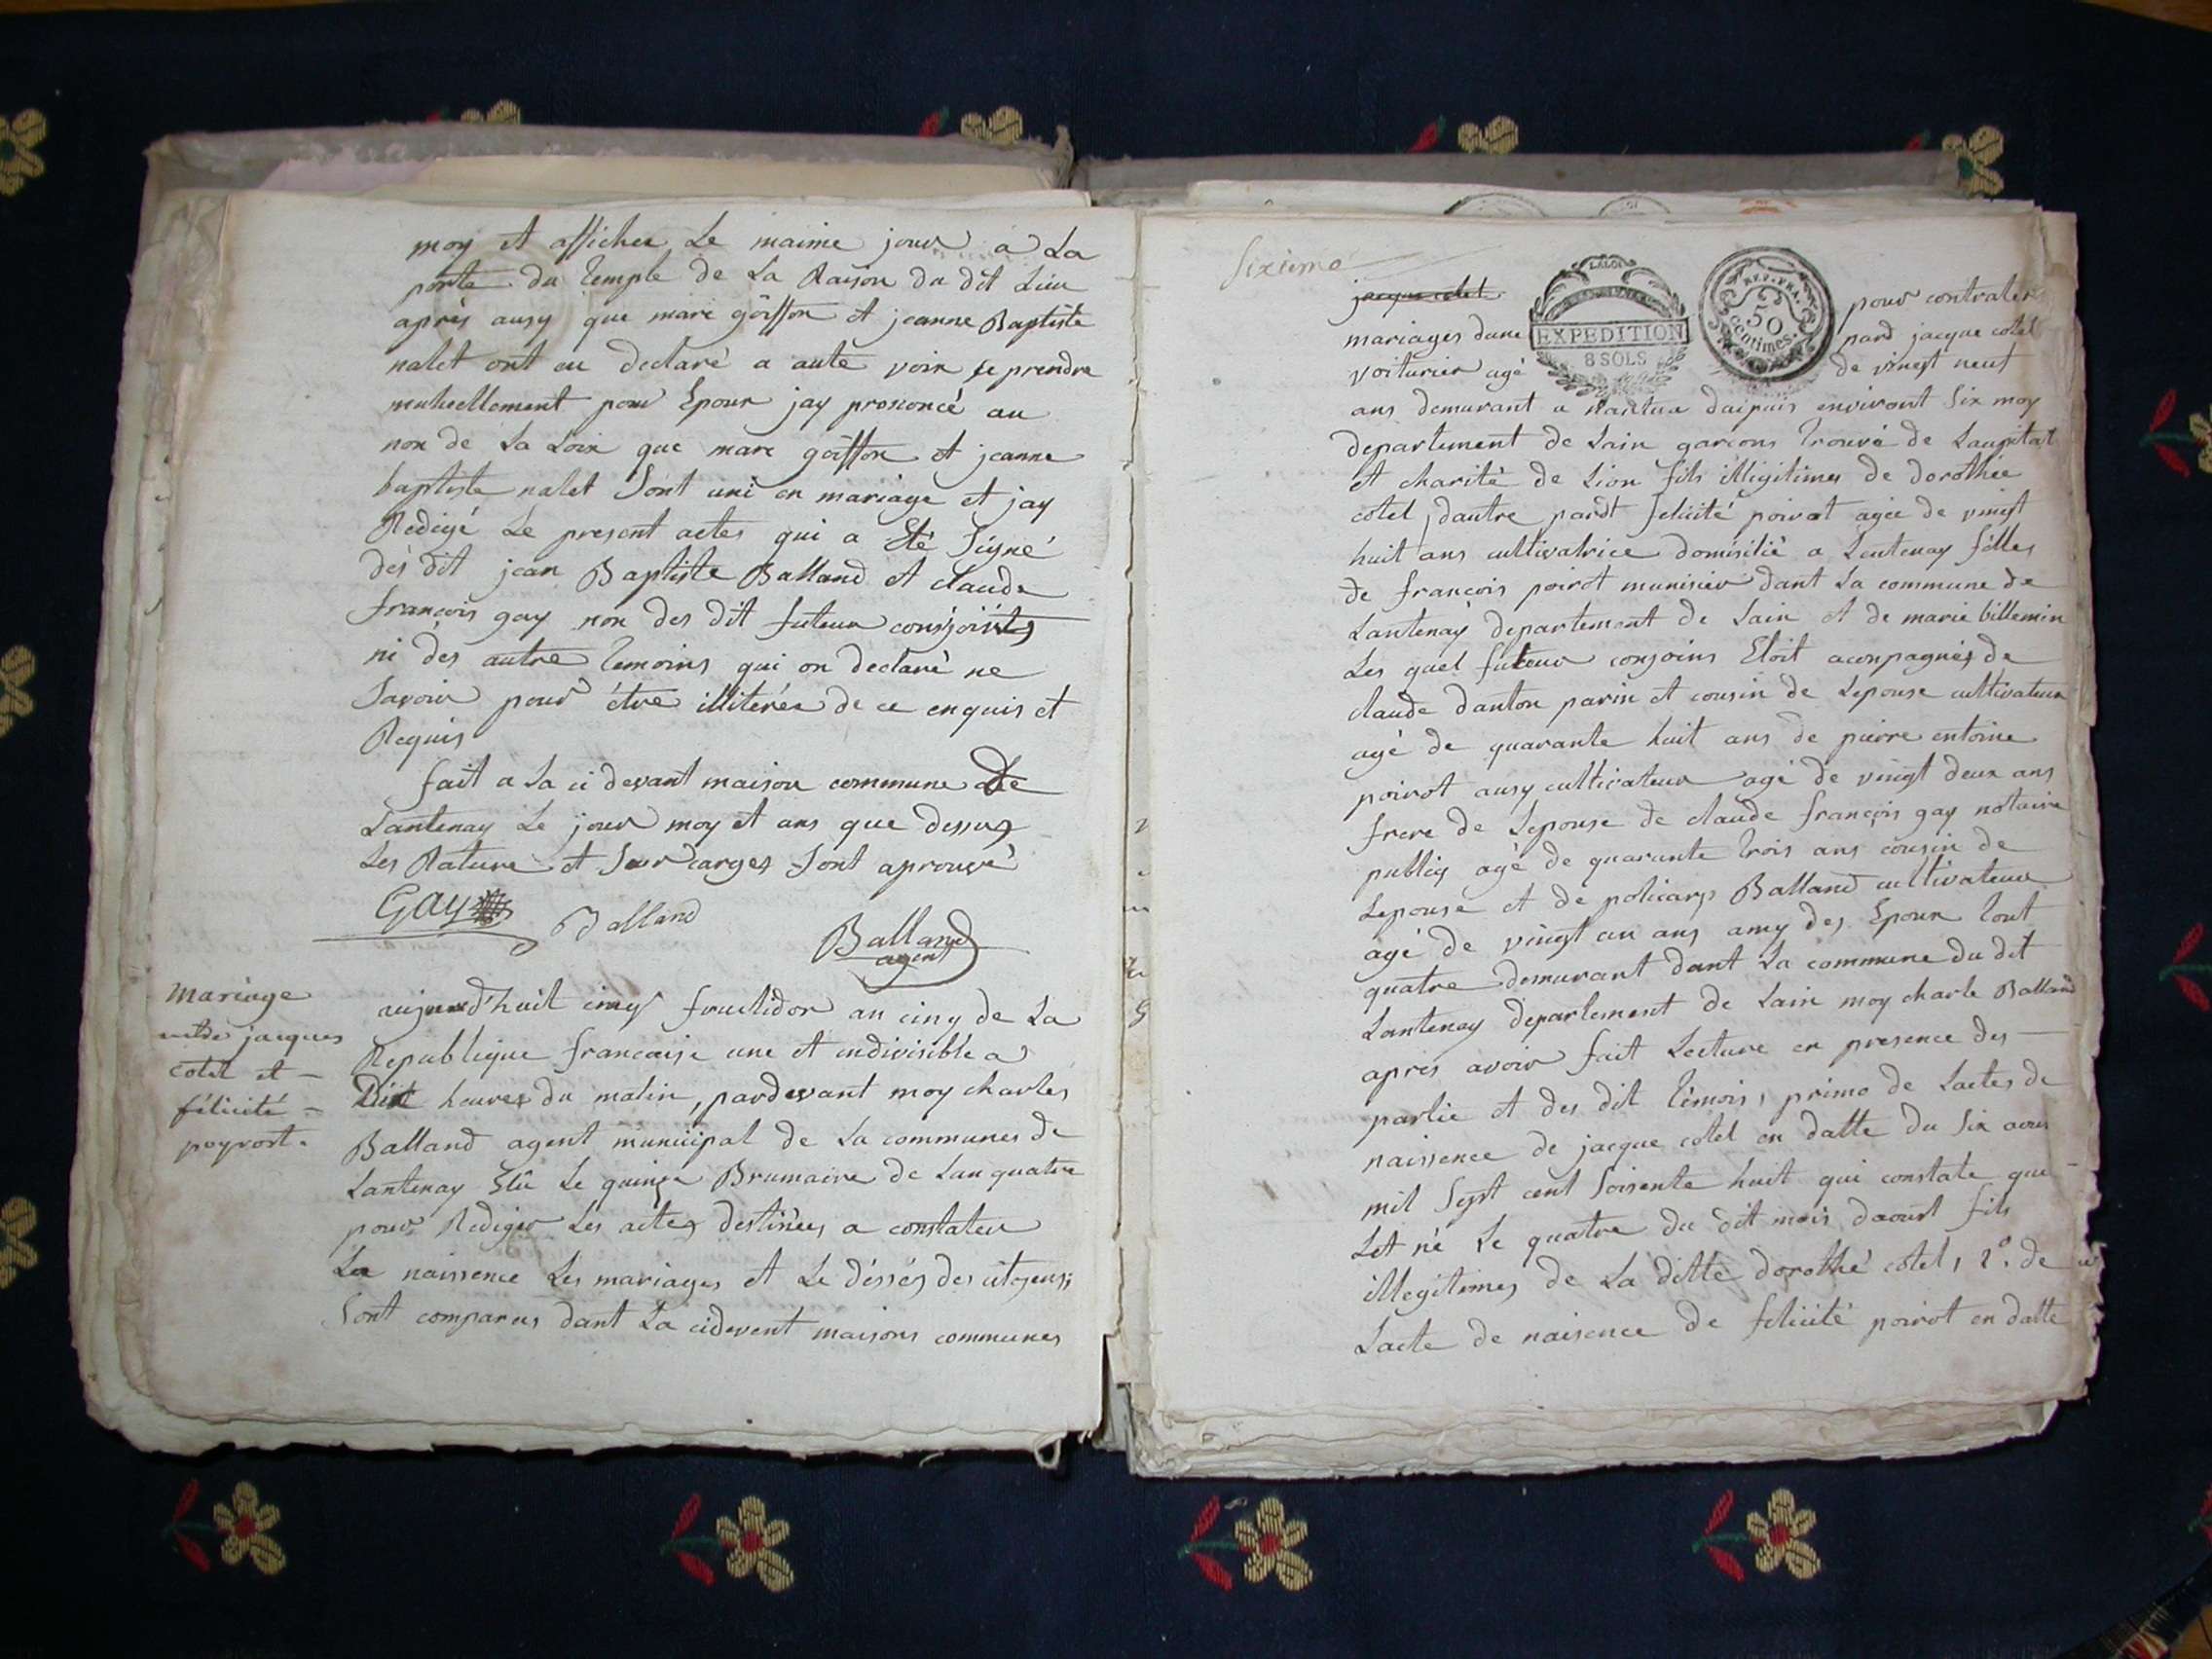 moy et afficher Le maime jour a La
porte du temple de La Raison du dit Lieu
après ausy que marc goiffon et jeanne Baptiste
nalet ont eu declaré a aute voix se prendre
mutuellement pour Epoux jay prononcé au
non de La Loix que marc goiffon et jeanne
baptiste nalet Sont uni en mariage et jay
Redigé Le present actes qui a Eté Signé
des dit jean Baptiste Balland et claude
françois gay non des dit futeur consjoints
ni des autre temoins qui on declaré ne
Savoir pour être illiterée de ce enquis et
Requis
fait a La ci devant maison commune de
Lantenay Le jour moy et ans que dessus
Les Rature et Surcarges Sont aprouvé
Gay Balland
Balland
agent
mariage
jacques
cotel et
félicité
poyrost.
aujourd'huit cinq fructidor an cinq de La
Republique francaise une et indivisible a
Dix heures du matin, pardevant moy charles
Balland agent municipal de La communes de
Lantenay Elû Le quinze Brumaire de Lan quatre
pour Rediger Les actes destinées a constater
La naissence Les mariages et Le désses des citoyens;
Sont comparus dant La cidevent maisons communes
Sixieme
jacque cotel
LA LOI
EXPEDITION
8 SOLS
REP. FRA.
50
centimes
pour contrater
mariages dune pard jacque cotel
voiturier agé de vingt neuf
ans demurant a nantua daipuis environt Six moy
departement de Lain garçons trouvé de Laupital
et charité de Lion fils illigitimes de dorothée
cotel, dautre pardt felicité poirot agée de vingt
huit ans cultivatrice domisilié a Lentenay filles
de françois poirot munisier dant La commune de
Lantenay departement de Lain et de marie billemin
Les quel futeur conjoins Etoit aconpagnés de
claude danton parin et cousin de Lepouse cultivateur
agé de quarante huit ans de pierre entoine
poirot ausy cultivateur agé de vingt deux ans
frere de Lepouse de claude françois gay notaire
publiq agé de quarante trois ans cousin de
Lepouse et de policarp Balland cultivateur
agé de vingt un ans amy des Epoux tout
quatre demurant dant La commune du dit
Lantenay departement de Lain moy charle Balland
apres avoir fait Lecture en presence des
partie et des dit témois, primo de Lactes de
naissence de jacque cotel en datte du Six aous
mil Sept cent Soisente huit qui constate que
Let né Le quatre du dit mois daoust fils
illegitimes de La ditte dorothé cotel, 2º. de
Lacte de naisence de felicité poirot en datte